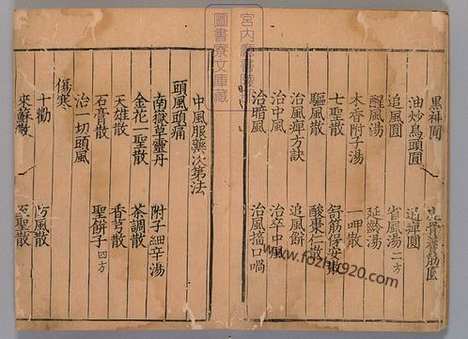 黑神圓
油炒烏頭圓
追風圓 追痺圓
醒風湯 省風湯二方
木香附子湯 延齡湯
七聖散 一呷散
驅風散 舒筋保安散
治風痺方訣 酸棗仁散
治中風 追風餅
治暗風 治卒中風
治風搐口喎
中風服藥次第法
頭風頭痛
南嶽草靈丹 附子細辛湯
金花一聖散 茶調散
天雄散 香芎散
石膏散 聖餅子四方
治一切頭風
傷寒
十勸 防風散
來蘇散 至聖散
宮內
圖書寮文庫藏
www.fozhu920.com